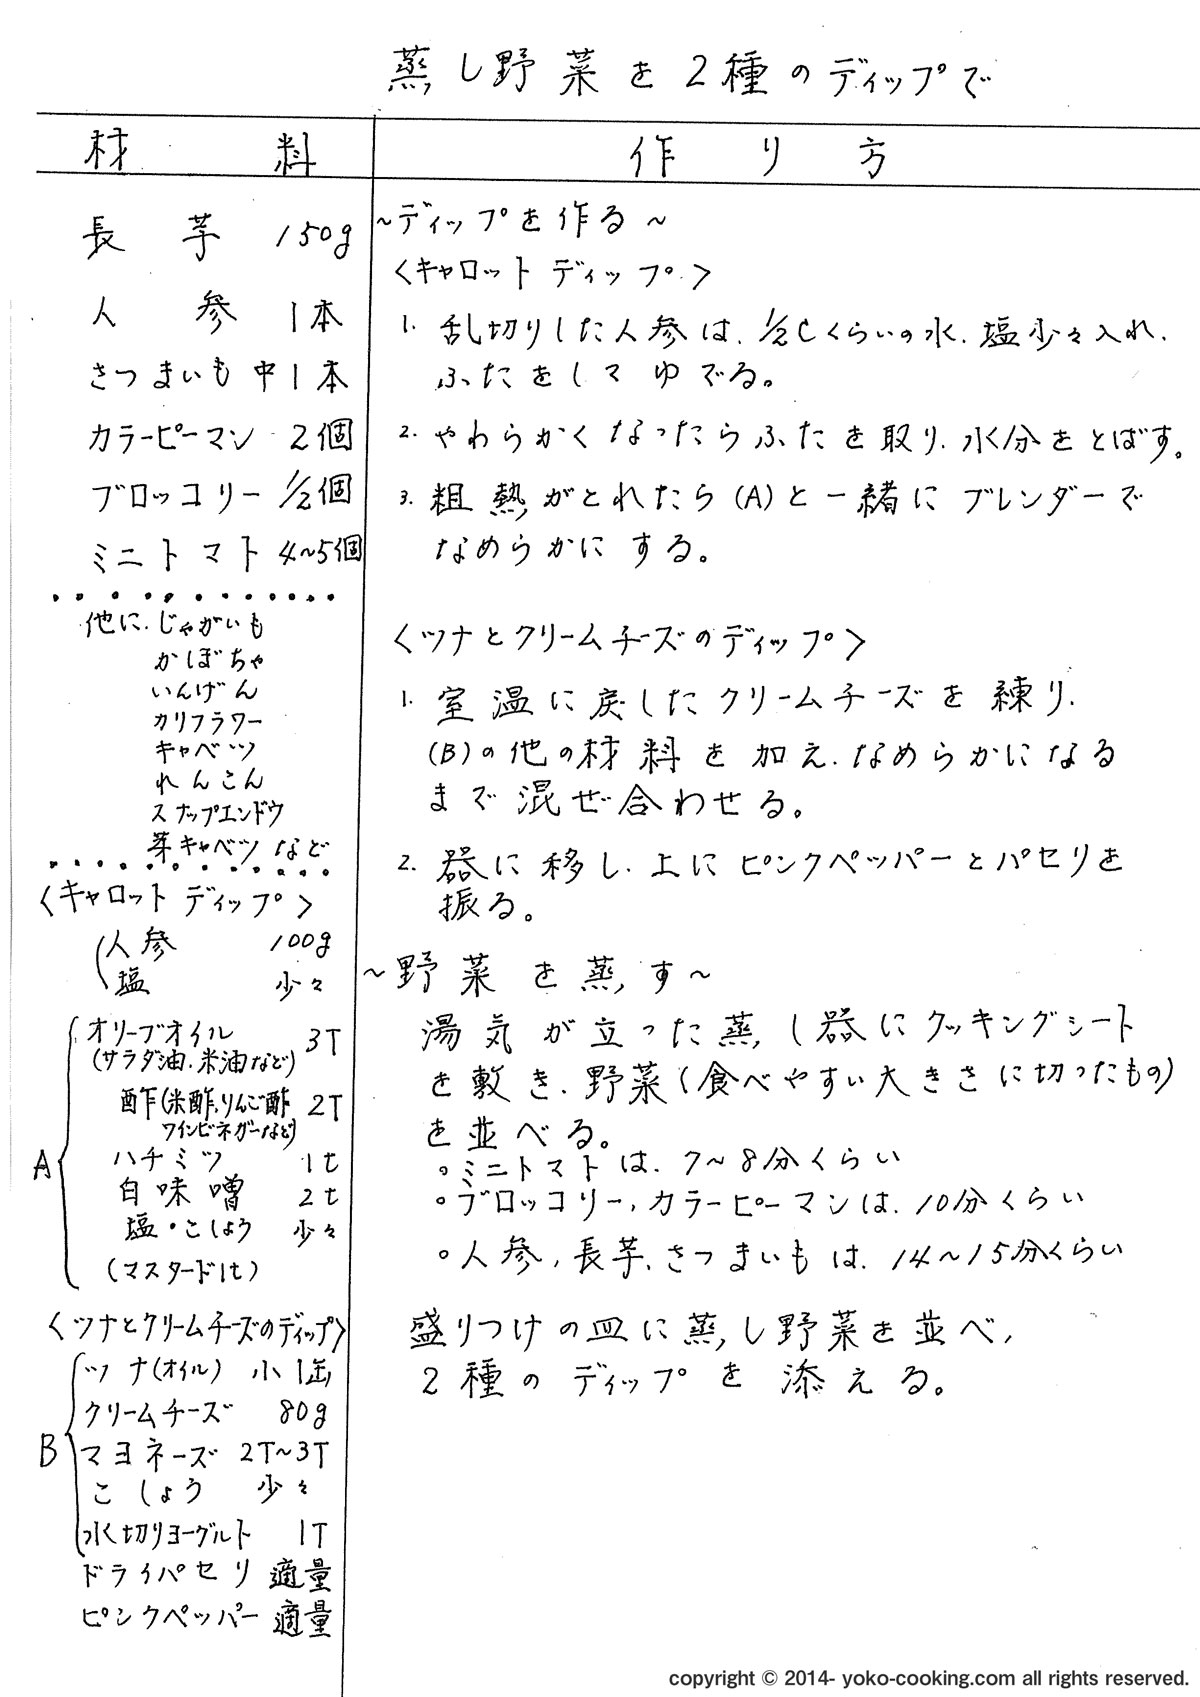 蒸し野菜を2種のディップで
材料
作り方
長芋 150g
人参 1本
さつまいも 中1本
カラーピーマン 2個
ブロッコリー 1/2個
ミニトマト 4~5個
他に、じゃがいも
かぼちゃ
いんげん
カリフラワー
キャベツ
れんこん
スナップエンドウ
芽キャベツ など
〈キャロット ディップ〉
人参 100g
塩 少々
A
オリーブオイル 3T
(サラダ油、米油など)
酢(米酢、りんご酢 2T
ワインビネガーなど)
ハチミツ 1t
白味噌 2t
塩・こしょう 少々
(マスタード1t)
〈ツナとクリームチーズのディップ〉
B
ツナ(オイル) 小1缶
クリームチーズ 80g
マヨネーズ 2T~3T
こしょう 少々
水切りヨーグルト 1T
ドライパセリ 適量
ピンクペッパー 適量
~ディップを作る~
〈キャロット ディップ〉
1. 乱切りした人参は、1/2Cくらいの水、塩少々入れ、
ふたをしてゆでる。
2. やわらかくなったらふたを取り、水分をとばす。
3. 粗熱がとれたら(A)と一緒にブレンダーで
なめらかにする。
〈ツナとクリームチーズのディップ〉
1. 室温に戻したクリームチーズを練り、
(B)の他の材料を加え、なめらかになる
まで混ぜ合わせる。
2. 器に移し、上にピンクペッパーとパセリを
振る。
~野菜を蒸す~
湯気が立った蒸し器にクッキングシート
を敷き、野菜(食べやすい大きさに切ったもの)
を並べる。
○ミニトマトは、7~8分くらい
○ブロッコリー、カラーピーマンは、10分くらい
○人参、長芋、さつまいもは、14~15分くらい
盛りつけの皿に蒸し野菜を並べ、
2種のディップを添える。
copyright © 2014- yoko-cooking.com all rights reserved.